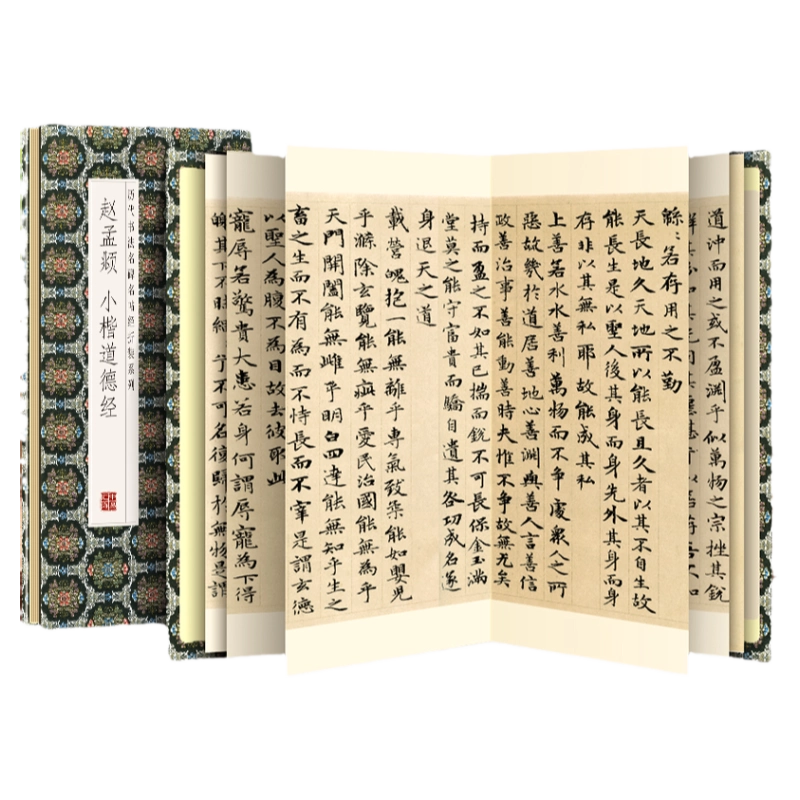 历代书法名碑名帖经折装系列
赵孟頫 小楷道德经
道沖而用之或不盈淵乎似萬物之宗挫其銳
緜〻若存用之不勤
天長地久天地所以能長且久者以其不自生故
能長生是以聖人後其身而身先外其身而身
存非以其無私耶故能成其私
上善若水水善利萬物而不爭處衆人之所
惡故幾於道居善地心善淵與善人言善信
政善治事善能動善時夫惟不爭故無尤矣
持而盈之不如其已揣而銳不可長保金玉滿
堂莫之能守富貴而驕自遺其咎功成名遂
身退天之道
載營魄抱一能無離乎專氣致柔能如嬰兒
乎滌除玄覽能無疵乎愛民治國能無為乎
天門開闔能無雌乎明白四達能無知乎生之
畜之生而不有為而不恃長而不宰是謂玄德
以聖人為腹不為目故去彼取此
寵辱若驚貴大患若身何謂辱寵為下得